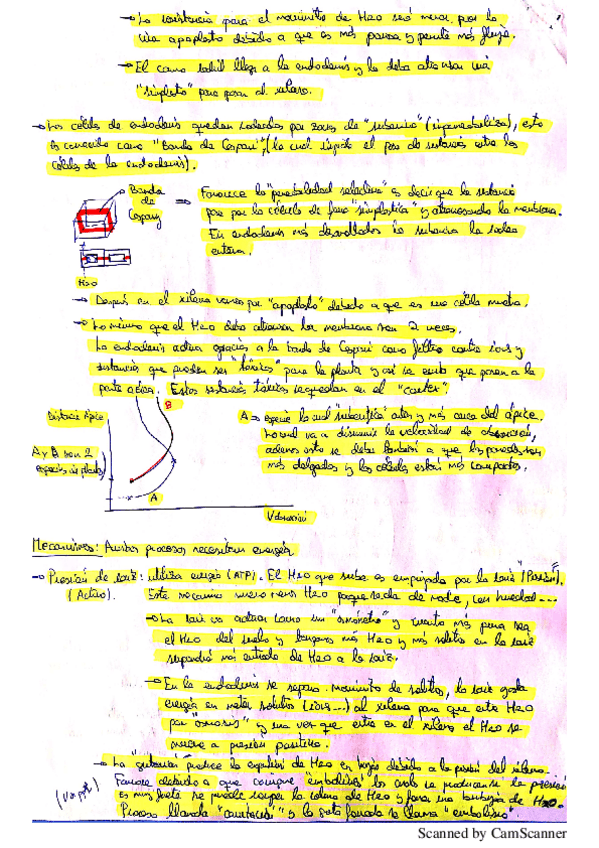 → La resistencia para el movimiento de H2O será menor por la
vía apoplasto debido a que es más porosa y permite más flujo.
→ El camino hasta llega a la endodermis y la debe atravesar vía
"simplasto" para pasar al xilema.
→ Las células de endodermis quedan rodeadas por zonas de "suberina" (impermeabiliza), esto
es conocido como "Banda de Caspari", (lo cual impide el paso de sustancias entre las
células de la endodermis).
Banda
de
Caspary
⇒ Favorece la "permeabilidad selectiva" es decir que la sustancia
pase por la célula de forma "simplástica" y atravesando la membrana.
En endodermis más desarrolladas la suberina la rodea
entera.
H2O
→ Después en el xilema vamos por "apoplasto" debido a que es una célula muerta.
→ Lo mínimo que el H2O debe atravesar las membranas son 2 veces.
La endodermis actúa gracias a la banda de Caspari como filtro contra iones y
sustancias que pueden ser "tóxicas" para la planta y así se evita que pasen a la
parte aérea. Estas sustancias tóxicas se quedan en el "cortex".
Distancia ápice
A y B son 2
especies de plantas
B
A
V absorción
A ⇒ especie la cual "suberifica" antes y más cerca del ápice.
Lo cual va a disminuir la velocidad de absorción,
además esto se debe también a que las paredes son
más delgadas y las células están más compactas.
Mecanismos: Ambos procesos necesitan energía
→ Presión de raíz: utiliza energía (ATP). El H2O que sube es empujada por la raíz "(Presión)".
(Activo). Este mecanismo mueve menos H2O porque se da de noche, con humedad...
→ La raíz va actuar como un "osmómetro" y cuanto más pura sea
el H2O del suelo y tengamos más H2O y más solutos en la raíz
supondrá más entrada de H2O a la raíz.
→ En la endodermis se separa movimiento de solutos, la raíz gasta
energía en meter solutos (iones...) al xilema para que entre H2O
por "osmosis" y una vez que entra en el xilema el H2O se
mueve a presión positiva.
→ La "gutación" produce la expulsión de H2O en hojas debido a la presión del xilema.
Favorece debido a que rompe "embolias" los cuales se producen si la presión
es muy fuerte se puede romper la columna de H2O y forma una burbuja de H2O.
Proceso llamado "cavitación" y la gota formada se llama "embolismo".
Scanned by CamScanner